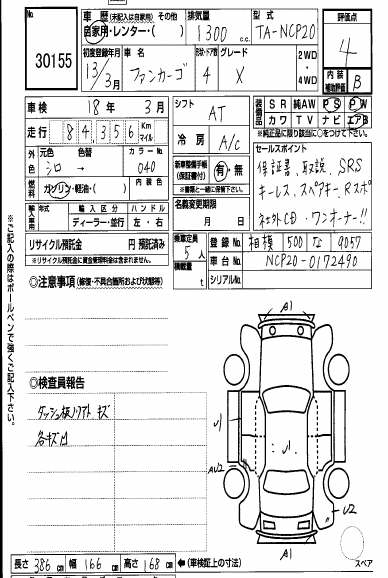 No.
30155
車歴 (未記入は自家用) その他
自家用・レンター・( )
排気量
1300 c.c.
型式
TA-NCP20
評価点
4
内装
補助評価
B
初度登録年月
13/3月
車名
ファンカーゴ
ドア形状
4
グレード
X
2WD
・
4WD
車検
18年 3月
走行
84,356 Km
マイル
シフト
AT
冷房
A/c
装備品
SR 純AW PS PW
カワ TV ナビ エアB
※純正品に限り該当個所に○をつけて下さい。
外色
元色 色替
シロ →
カラーNo.
040
燃料
ガソリン・軽油・( )
内装色
輸入車用
輸入区分
ディーラー・並行
ハンドル
左・右
新車整備手帳
(保証書)
有・無
※書類と一緒に保管して下さい。
名義変更期限
月 日
セールスポイント
保証書、取説、SRS
キーレス、スペアキー、Rスポ
社外CD・ワンオーナー!!
リサイクル預託金 円 預託済み
※リサイクル預託金に資金管理料金は含まれません。
乗車定員
5人
積載量
t
登録No.
相模 500 な 9057
車台No.
NCP20-0172490
シリアルNo.
◎注意事項 (修復・不具合箇所および欠品等)
※ご記入の際はボールペンで強くご記入下さい。
◎検査員報告
ダッシュ板リフト キズ
各キズ凹
A1
U1
U1
AU2
U2
A1
スペア
長さ 386 cm 幅 166 cm 高さ 168 cm ◀(車検証上の寸法)